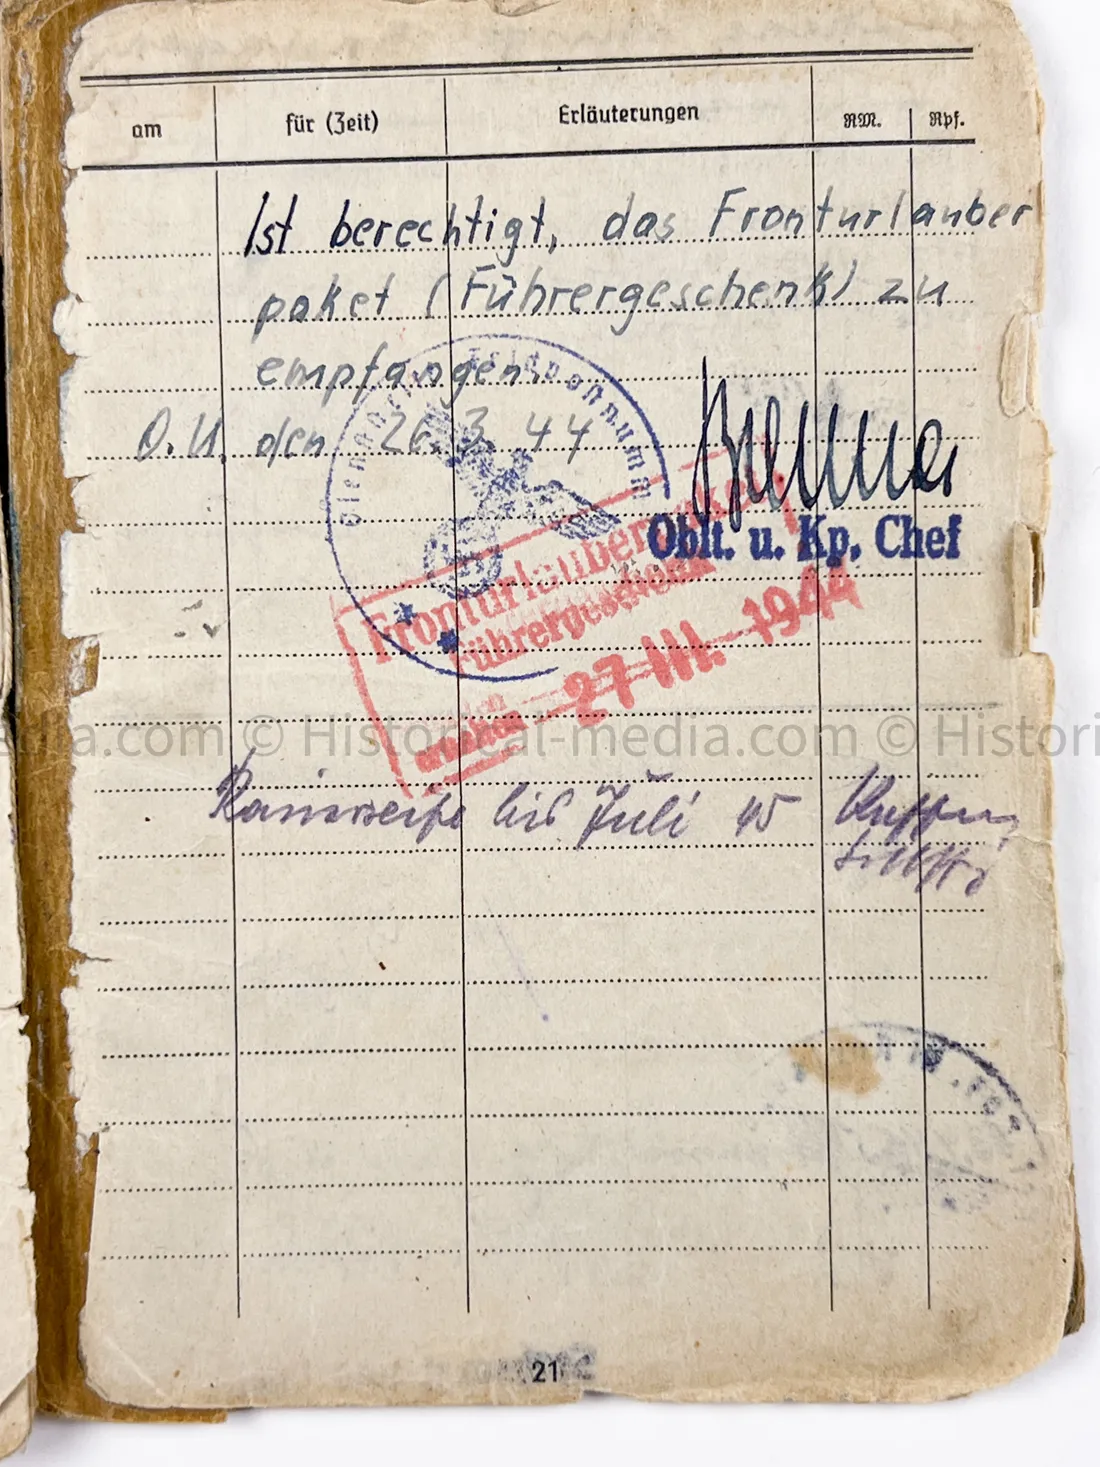 am für (Zeit) Erläuterungen RM. Rpf.
Ist berechtigt, das Fronturlauber
paket (Führergeschenk) zu
empfangen.
O.U. den 26.3.44
Dienststelle Feldpostnummer
Oblt. u. Kp. Chef
Fronturlauberpaket
Führergeschenk
erhalten 27 III. 1944
© Historical-media.com © Histori
Rasierseife bis Juli 45
21